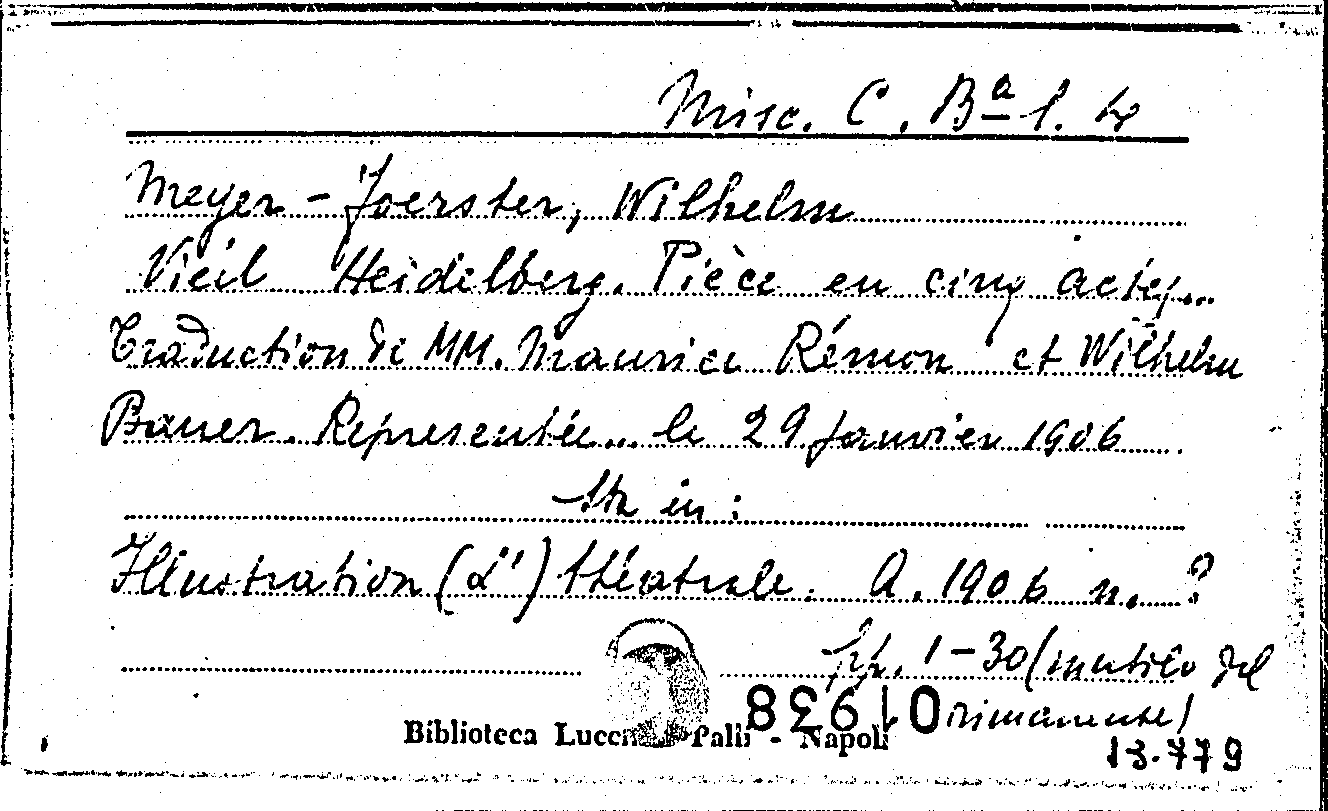 Misc. C. Bª 1. 4
Meyer-Foerster, Wilhelm
Vieil Heidelberg. Pièce en cinq actes...
Traduction de MM. Maurice Rémon et Wilhelm
Bauer. Représentée... le 29 Janvier 1906
Sta in:
Illustration (L') théatrale. A. 1906 n. ?
pp. 1-30 (mutilo del
rimanente)
Biblioteca Lucchesi Palli - Napoli
13.779